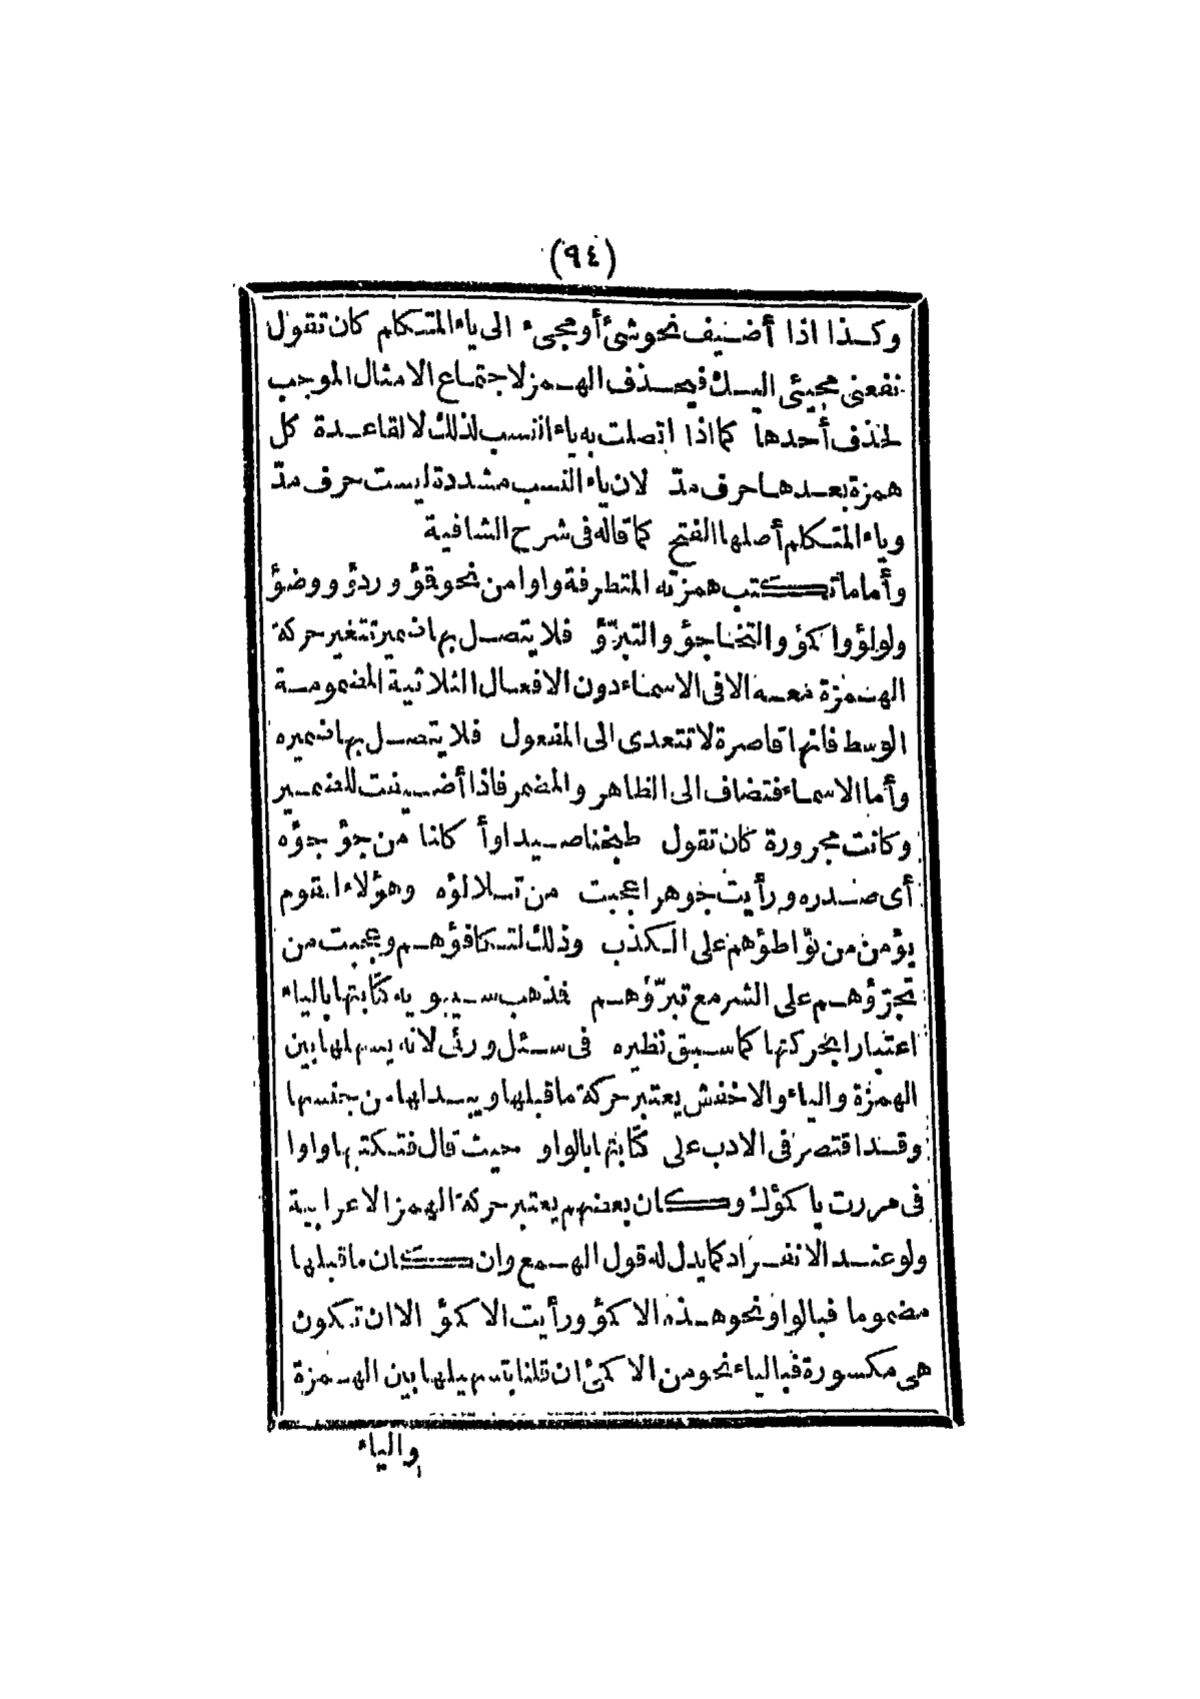 (٩٤)
وكذا اذا أضيف نحو شئ أو مجىء الى ياء المتكلم كان تقول
نفعنى مجيئى اليك فيحذف الهمز لاجتماع الامثال الموجب
لحذف أحدها كما اذا اتصلت به ياء النسب لذلك لا لقاعدة كل
همزة بعدها حرف مدّ لان ياء النسب مشددة ليست حرف مدّ
وياء المتكلم أصلها الفتح كما قاله فى شرح الشافية
وأما ما تكتب همزته المتطرفة واوا من نحو قمؤ وردؤ ووضؤ
ولؤلؤ واكمؤ والتخاجؤ والتبرّؤ فلا يتصل بها ضمير تتغير حركة
الهمزة معه الا فى الاسماء دون الافعال الثلاثية المضمومة
الوسط فانها قاصرة لا تتعدى الى المفعول فلا يتصل بها ضميره
وأما الاسماء فتضاف الى الظاهر والمضمر فاذا أضيفت للضمير
وكانت مجرورة كان تقول طبخنا صيدا وأكلنا من جؤجؤه
أى صدره ورأيت جوهرا عجبت من تلألؤه وهؤلاء القوم
يؤمن من تواطؤهم على الكذب وذلك لتكافؤهم وعجبت من
تجرّؤهم على الشر مع تبرّؤهم فذهب سيبويه كتابتها بالياء
اعتبارا بحركتها كما سبق نظيره فى سئل ورئى لانه يسهلها بين
الهمزة والياء والاخفش يعتبر حركة ما قبلها ويبدلها من جنسها
وقد اقتصر فى الادب على كتابتها بالواو حيث قال فتكتبها واوا
فى مررت باكمؤك وكان بعضهم يعتبر حركة الهمز الاعرابية
ولو عند الانفراد كما يدل له قول الهمع وان كان ما قبلها
مضموما فبالواو نحو هذه الاكمؤ ورأيت الاكمؤ الا ان تكون
هى مكسورة فبالياء نحو من الاكمئ ان قلنا بتسهيلها بين الهمزة
والياء